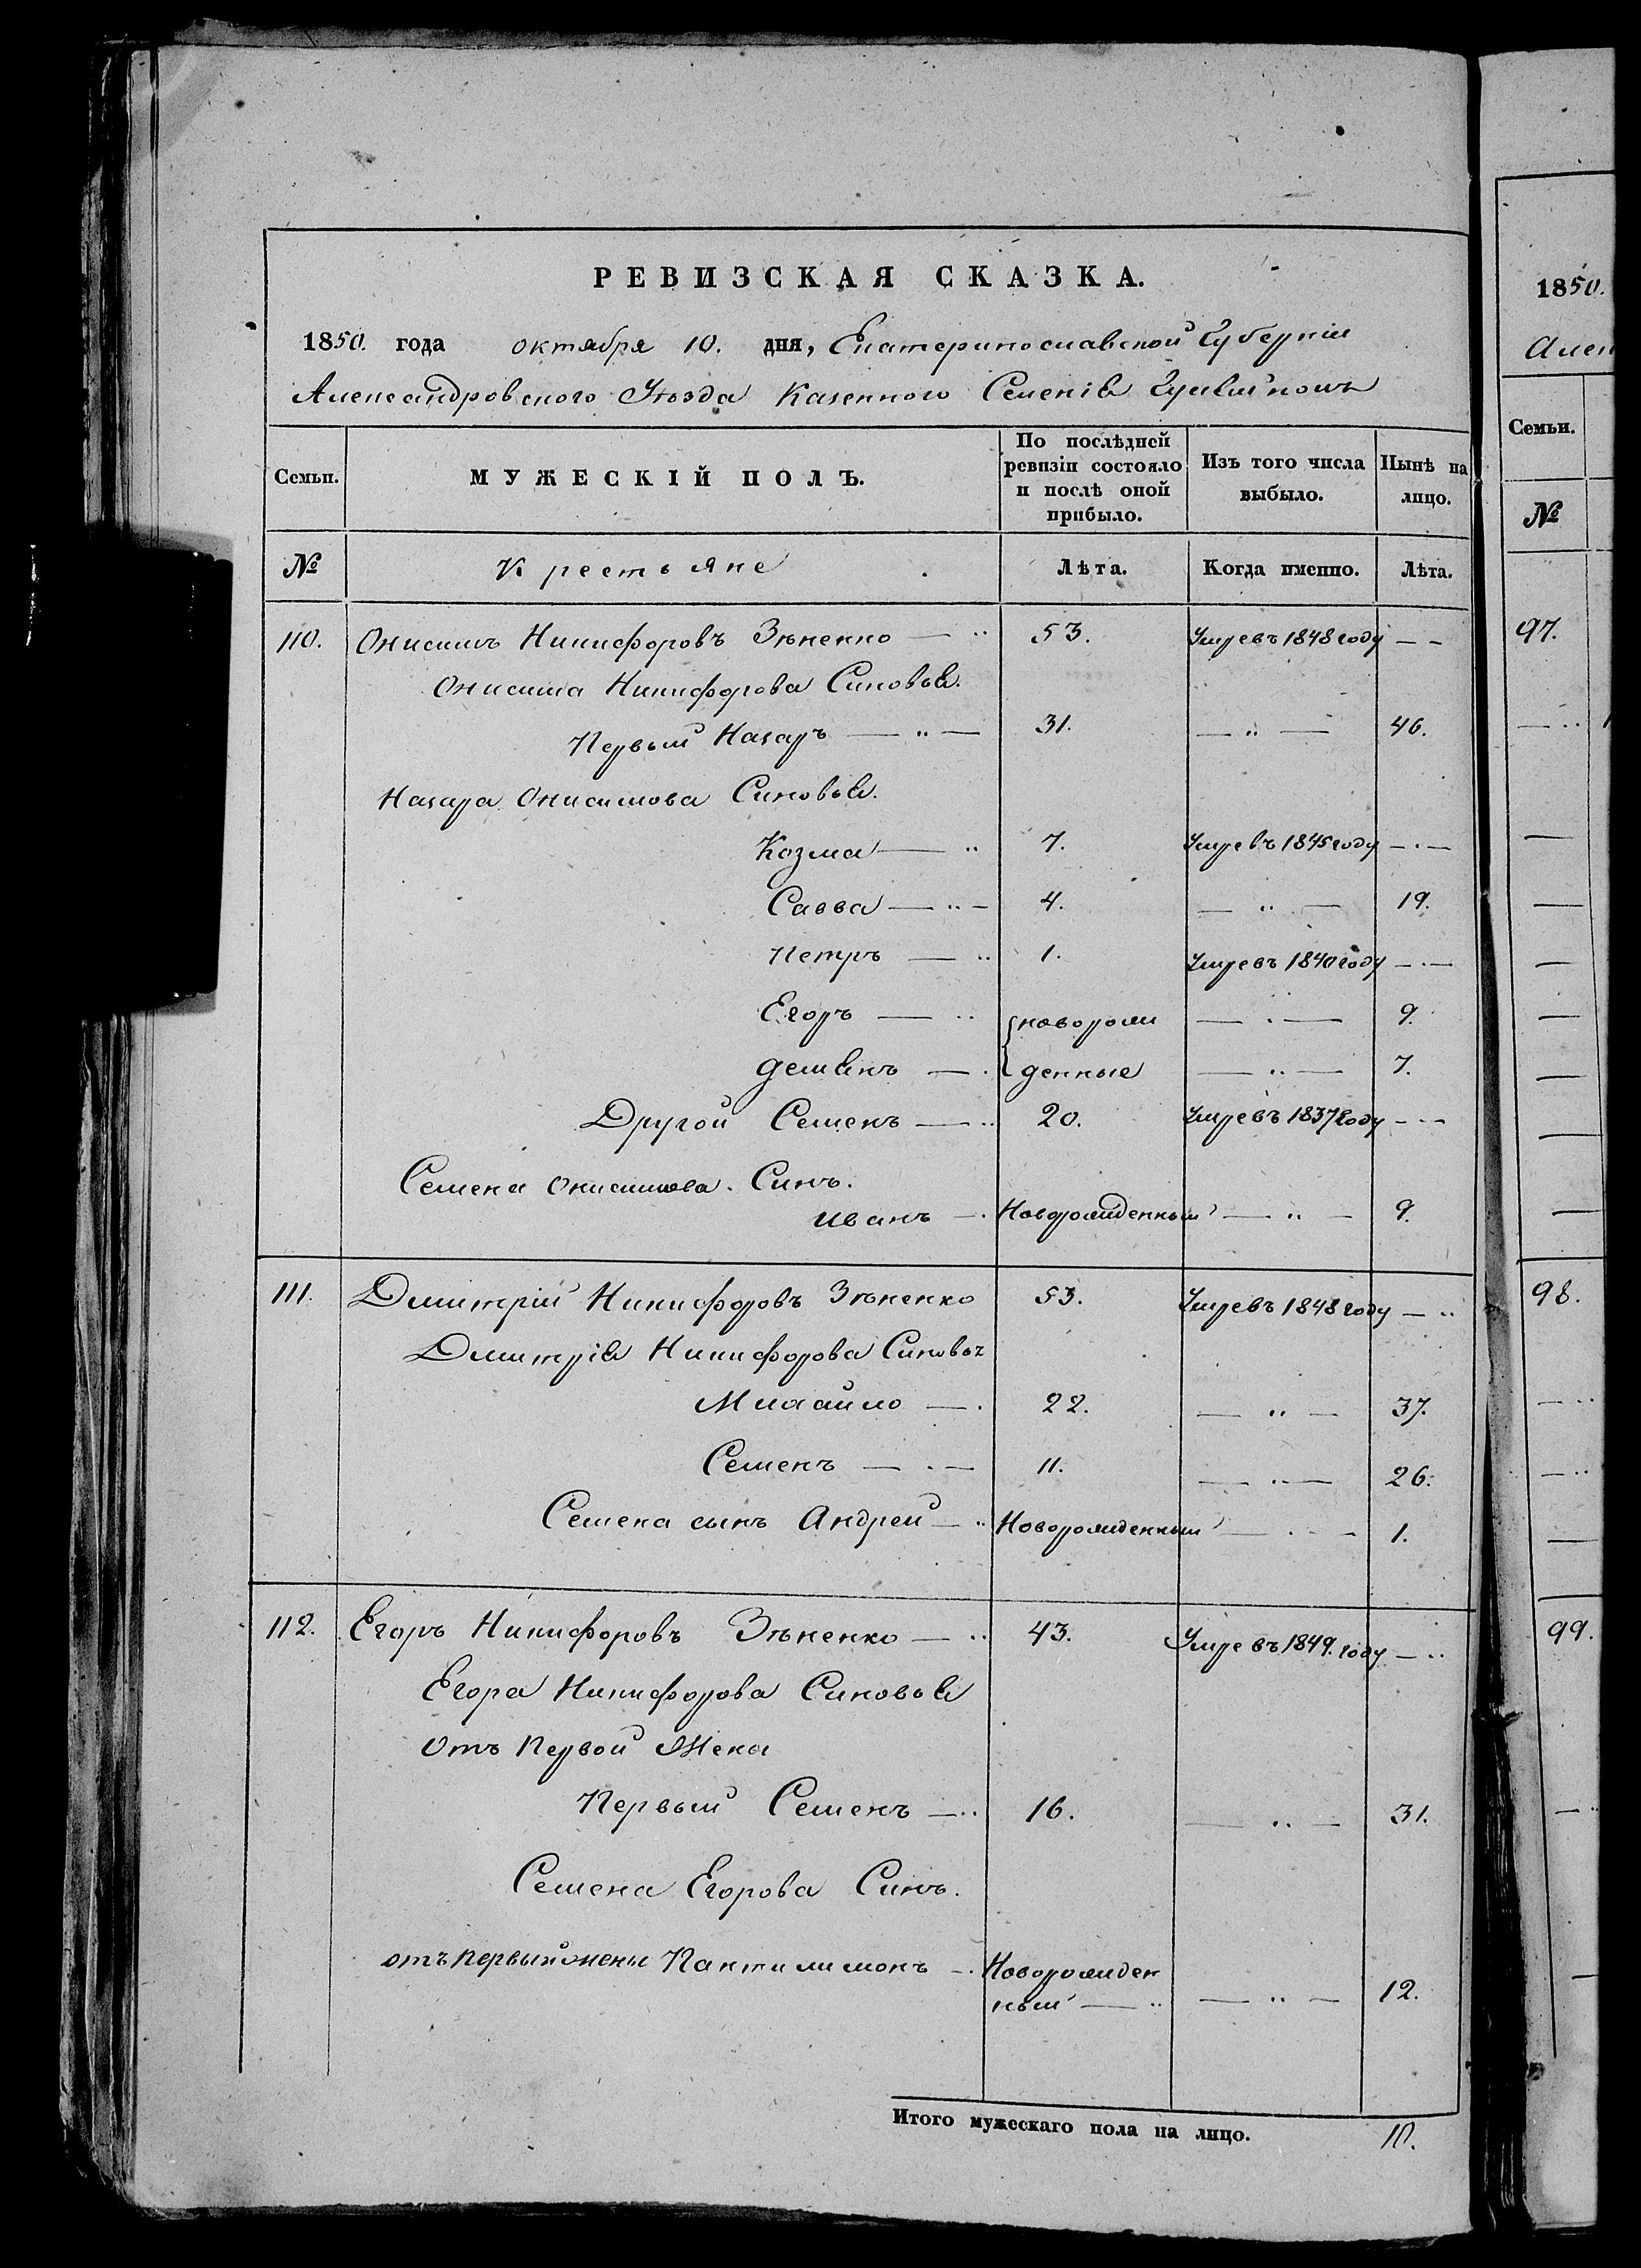 РЕВИЗСКАЯ СКАЗКА.
1850. года октября 10. дня, Екатеринославской Губерніи
Александровского Уѣзда Казенного Селенія Гуляйполь
Семьи.
МУЖЕСКІЙ ПОЛЪ.
По послѣдней ревизіи состояло и послѣ оной прибыло.
Изъ того числа выбыло.
Нынѣ на лицо.
№ Крестьяне Лѣта. Когда именно. Лѣта.
110. Онисимъ Никифоровъ Зѣненко — " 53. Умре въ 1848 году — —
Онисима Никифорова Синовья.
Первый Назаръ — " — 31. — " — 46.
Назара Онисимова Синовья.
Козма — " 7. Умре въ 1845 году — . —
Савва — " — 4. — " — 19.
Петръ — " 1. Умре въ 1840 году — . —
Егоръ — " новорож — . — 9.
Демянъ — . денные — " — 7.
Другой Семенъ — " 20. Умре въ 1837 году — . —
Семена Онисимова. Синъ.
Иванъ — . Новорожденный — " — 9.
111. Дмитрій Никифоровъ Зѣненко 53. Умре въ 1848 году — "
Дмитрія Никифорова Синовья
Михайло — . 22. — " — 37.
Семенъ — . — 11. — . — 26.
Семена сынъ Андрей — " Новорожденный — . — 1.
112. Егоръ Никифоровъ Зѣненко — " 43. Умре въ 1849. году — "
Егора Никифорова Синовья
Отъ первой Жена
Первый Семенъ — " 16. — " — 31.
Семена Егорова Синъ.
отъ первый жены Пантилимонъ — . Новорожден
ный — " — " — 12.
Итого мужескаго пола на лицо. 10.
1850.
Алек
Семьи.
№
97.
98.
99.